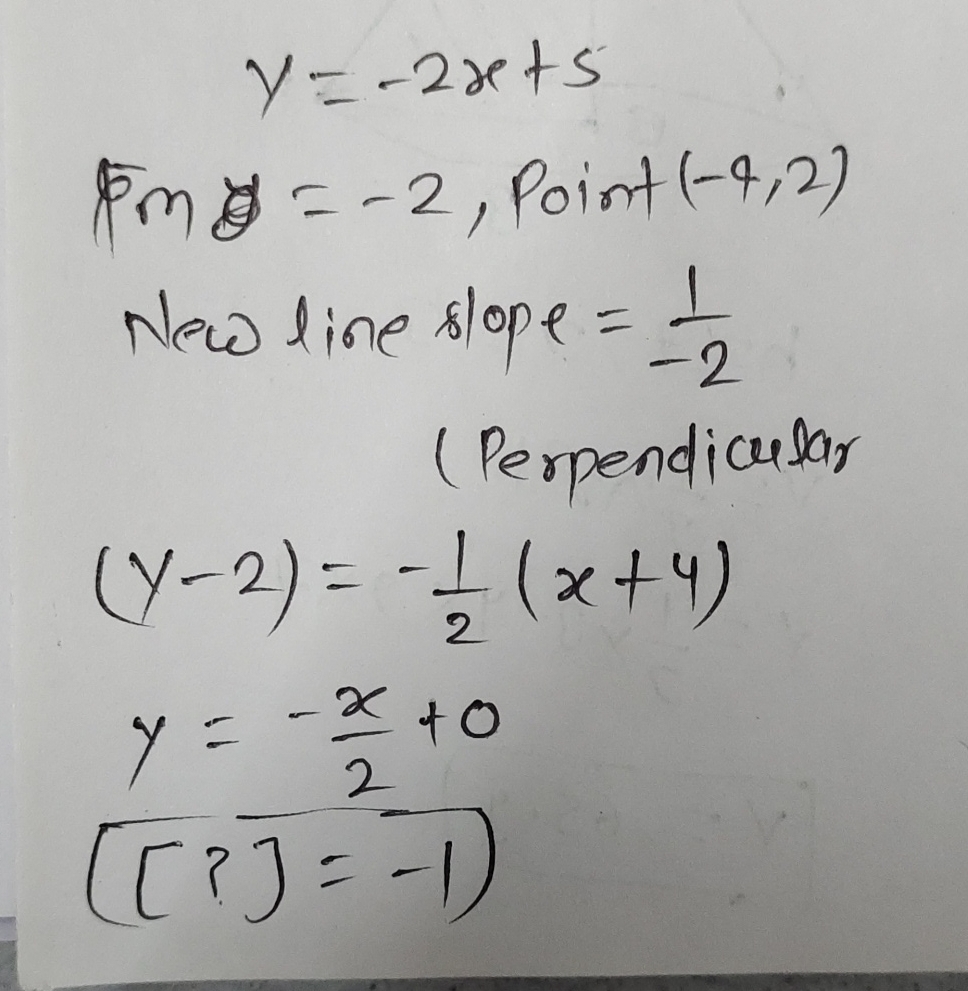 y = -2x + 5
m = -2, Point (-4,2)
New line slope = 1/-2
(Perpendicular
(y-2) = -1/2 (x+4)
y = -x/2 + 0
([?] = -1)